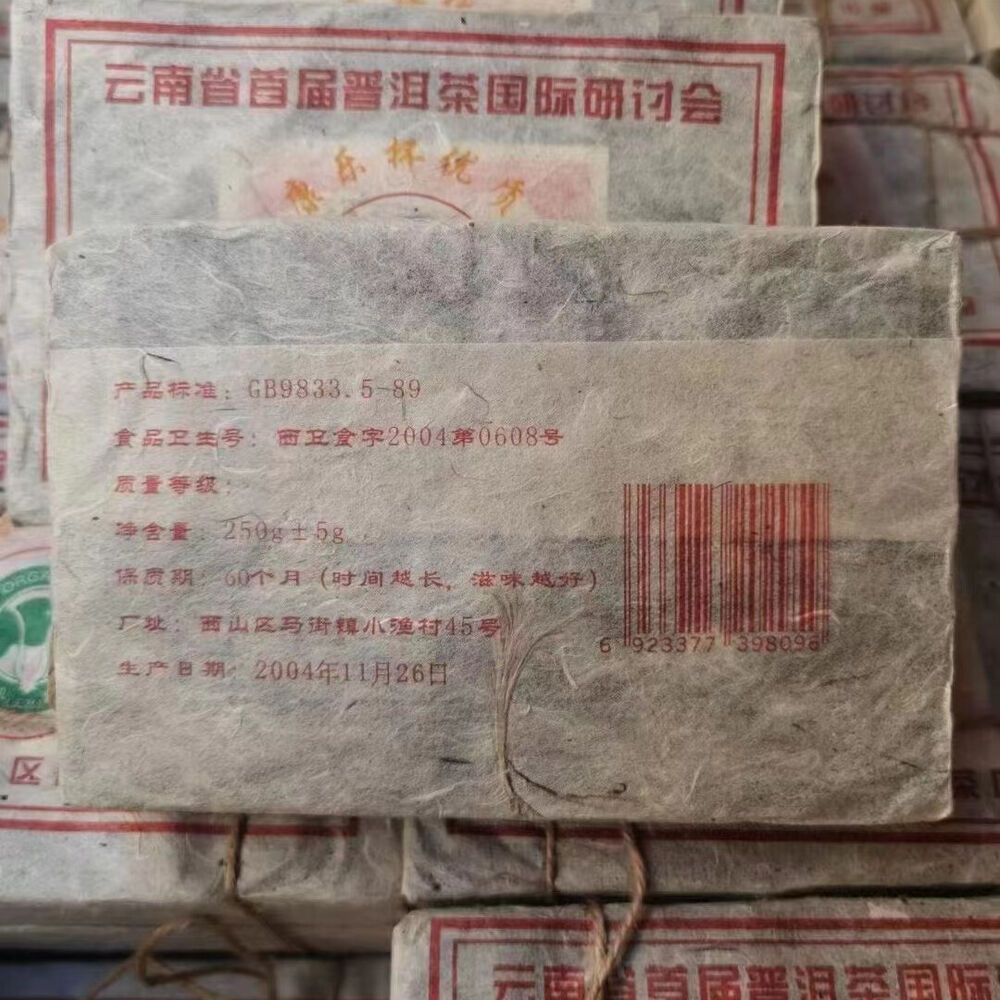 云南省首届普洱茶国际研讨会
产品标准：GB9833.5-89
食品卫生号：西卫食字2004第0608号
质量等级：
净含量：250g±5g
保质期：60个月（时间越长，滋味越好）
厂址：西山区马街镇小渔村45号
生产日期：2004年11月26日
6 923377 398096
云南省首届普洱茶国际